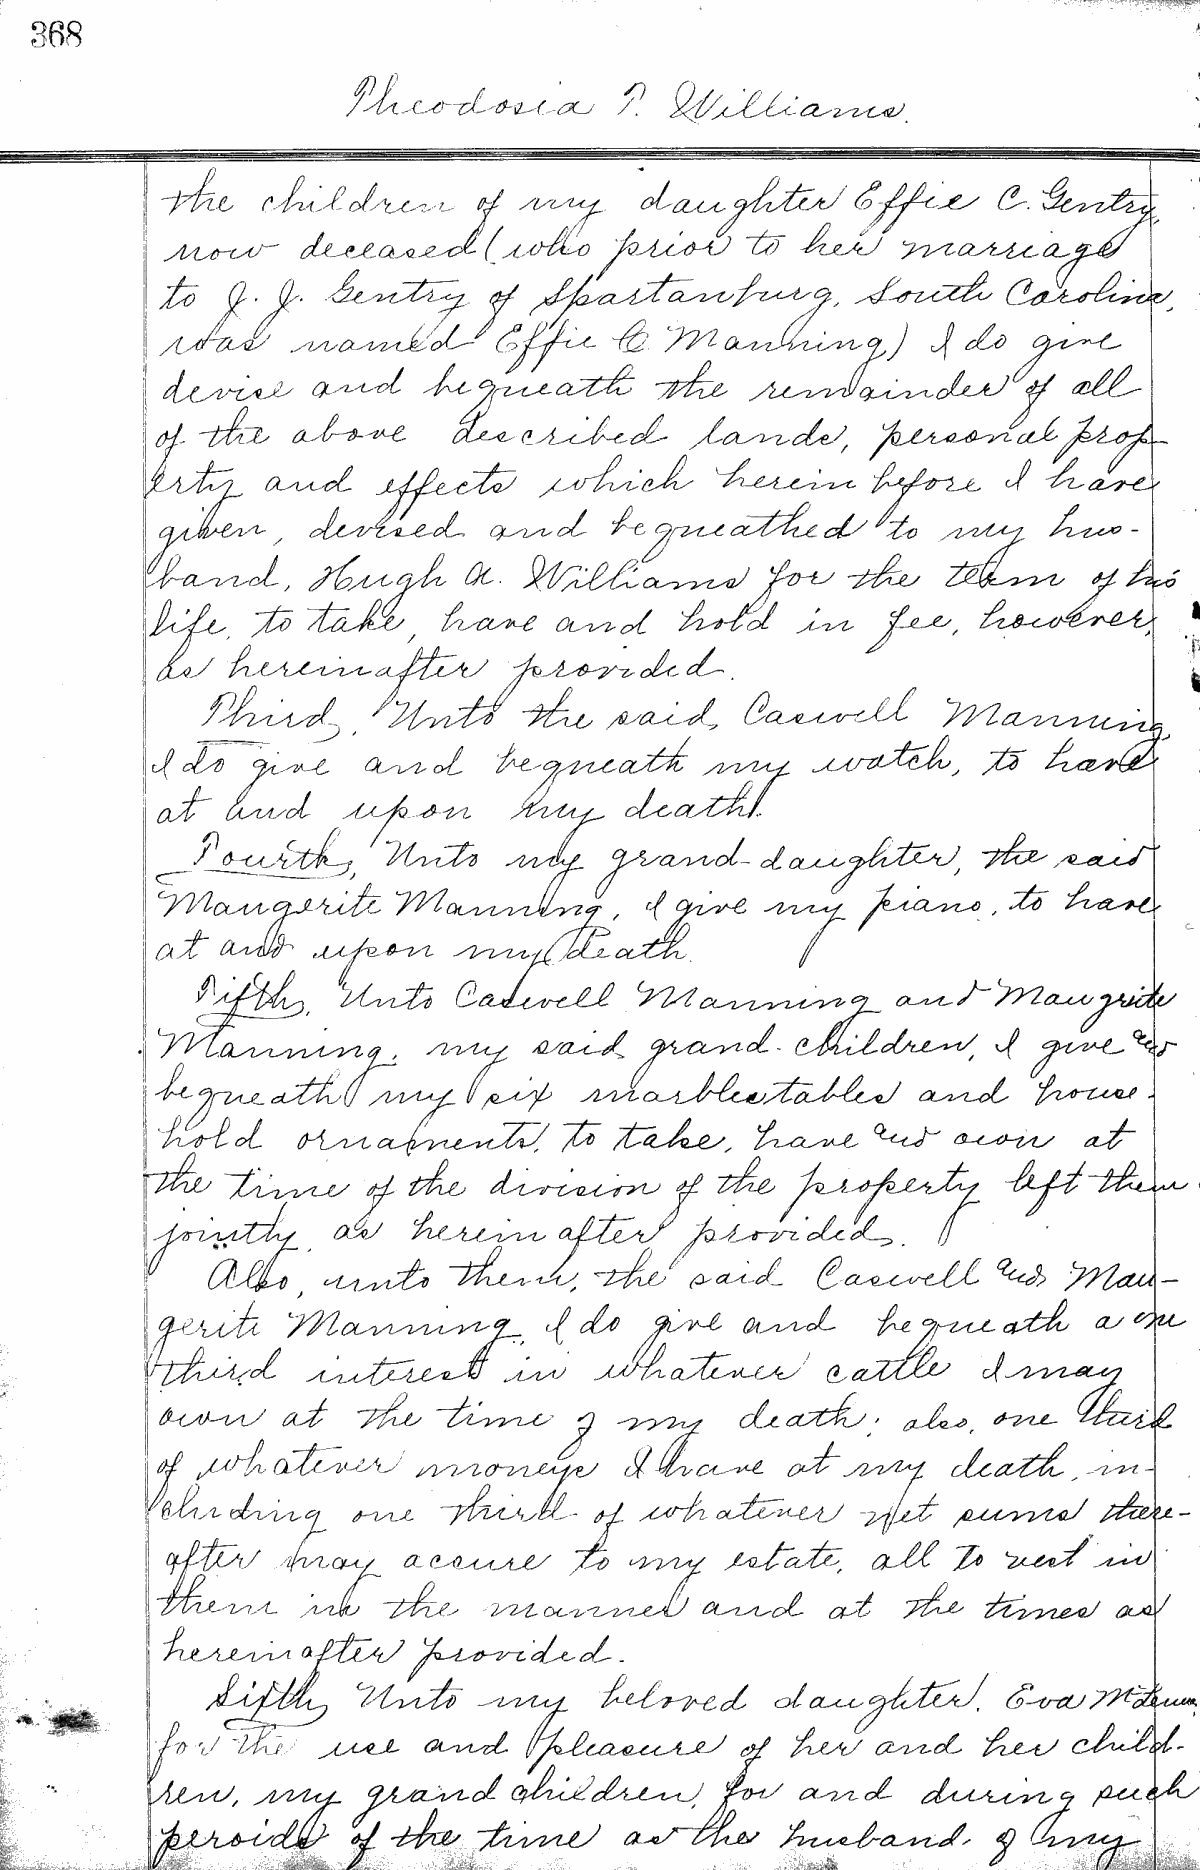 368
Theodosia T. Williams.
the children of my daughter Effie C. Gentry,
now deceased (who prior to her marriage
to J. J. Gentry of Spartanburg, South Carolina,
was named Effie C Manning) I do give
devise and bequeath the remainder of all
of the above described lands, personal prop-
erty and effects which herein before I have
given, devised and bequeathed to my hus-
band, Hugh A. Williams for the term of his
life, to take, have and hold in fee, however,
as hereinafter provided.
Third, Unto the said, Caswell Manning,
I do give and bequeath my watch, to have
at and upon my death.
Fourth, Unto my grand-daughter, the said
Maugerite Manning, I give my piano, to have
at and upon my death.
Fifth, Unto Caswell Manning and Maugrite
Manning, my said grand-children, I give and
bequeath my six marble tables and house-
hold ornaments, to take, have and own at
the time of the division of the property left them
jointly, as herein after provided.
Also, unto them, the said Caswell and Mau-
gerite Manning, I do give and bequeath a one
third interest in whatever cattle I may
own at the time of my death; also, one third
of whatever moneys I have at my death, in-
cluding one third of whatever net sums there-
after may accure to my estate, all to vest in
them in the manner and at the times as
hereinafter provided.
Sixth, Unto my beloved daughter, Eva
for the use and pleasure of her and her child-
ren, my grand children, for and during such
peroids of the time as the husband of my